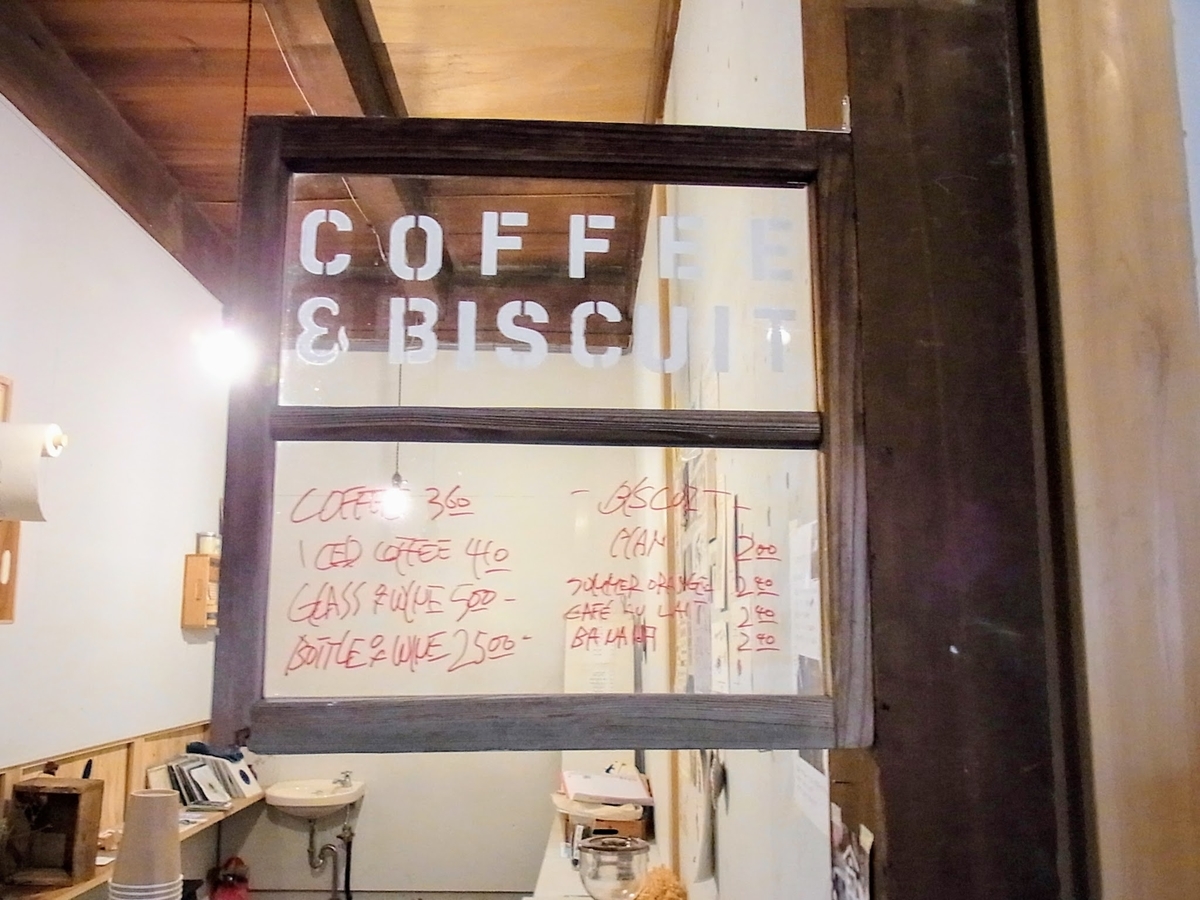 COFFEE
& BISCUIT
COFFEE 360
ICED COFFEE 410
GLASS OF WINE 500-
BOTTLE OF WINE 2500-
- BISCUIT -
PLAIN 200
SUMMER ORANGE 240
CAFÉ AU LAIT 240
BANANA 240